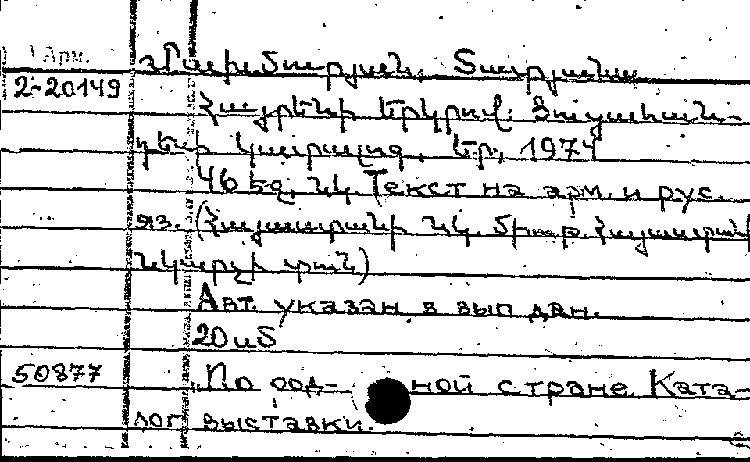 Арм.
2-20149
Տաթյանա
Հայրենի երկրով. Ցուցահան-
դեսի կատալոգ. Եր., 1974
46 եզ. նկ. Текст на арм. и рус.
яз. (Հայաստանի նկ. միութ. Հայաստանի
նկարչի տան)
Авт. указан в вып. дан.
20
50877
„По род- ной стране. Ката-
лог выставки.